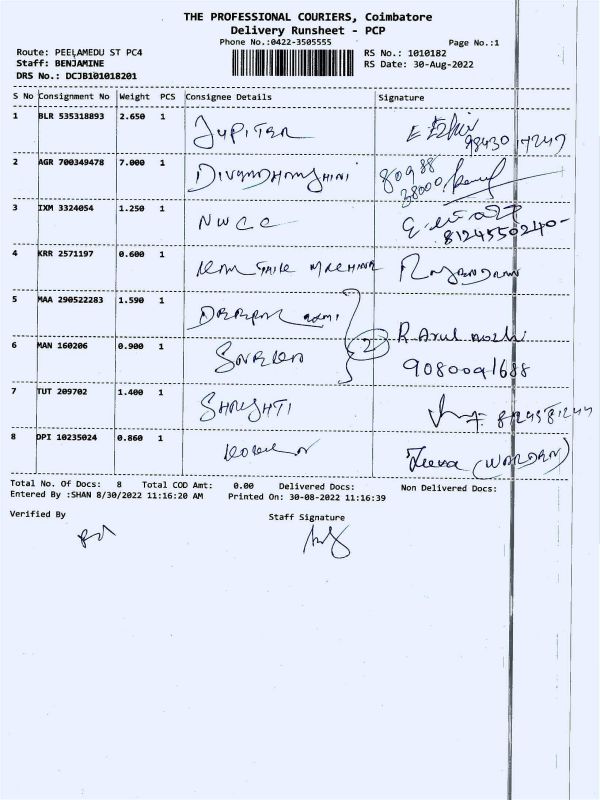 THE PROFESSIONAL COURIERS, Coimbatore
Delivery Runsheet - PCP
Phone No.:0422-3505555
Page No.:1
Route: PEELAMEDU ST PC4
RS No.: 1010182
Staff: BENJAMINE
RS Date: 30-Aug-2022
DRS No.: DCJB101018201
S No Consignment No Weight PCS Consignee Details Signature
1 BLR 535318893 2.650 1 JUPITER
2 AGR 700349478 7.000 1 80988
38000
3 IXM 3324054 1.250 1 NWCC
8124550240
4 KRR 2571197 0.600 1
5 MAA 290522283 1.590 1
2 R. Arul mozhi
6 MAN 160206 0.900 1 9080091688
7 TUT 209702 1.400 1 SHRISHTI
8 DPI 10235024 0.860 1 Jeeva (WARDEN)
Total No. Of Docs: 8 Total COD Amt: 0.00 Delivered Docs: Non Delivered Docs:
Entered By :SHAN 8/30/2022 11:16:20 AM Printed On: 30-08-2022 11:16:39
Verified By Staff Signature